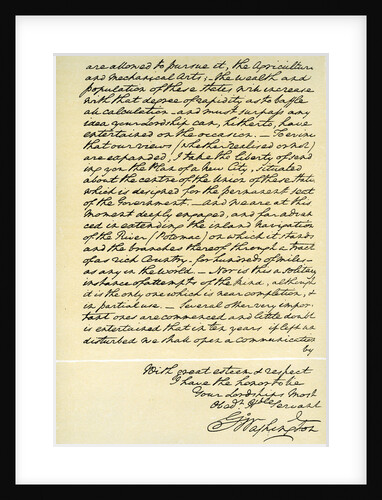 are allowed to pursue it, the Agriculture
and mechanical Arts; – the wealth and
population of these States will increase
with that degree of rapidity as to baffle
all calculation – and must surpass any
idea your Lordship can, hitherto, have
entertained on the occasion. – To evince
that our views (whether realised or not)
are expanded, I take the liberty of send
ing you the Plan of a new City, situated
about the centre of the Union of these States
which is designed for the permanent seat
of the Government. – And we are at this
moment deeply engaged, and far advan
ced in extending the inland navigation
of the River (Potomac) on which it stands
and the branches thereof through a tract
of as rich Country – for hundreds of miles –
as any in the world. – Nor is this a solitary
instance of attempts of the kind, although
it is the only one which is near completion, &
in partial use. – Several other very impor-
tant ones are commenced and little doubt
is entertained that in ten years if left un
disturbed we shall open a communication
by
With great esteem & respect
I have the honor to be
Your Lordships most
Obedt. Hble Servant
Go: Washington